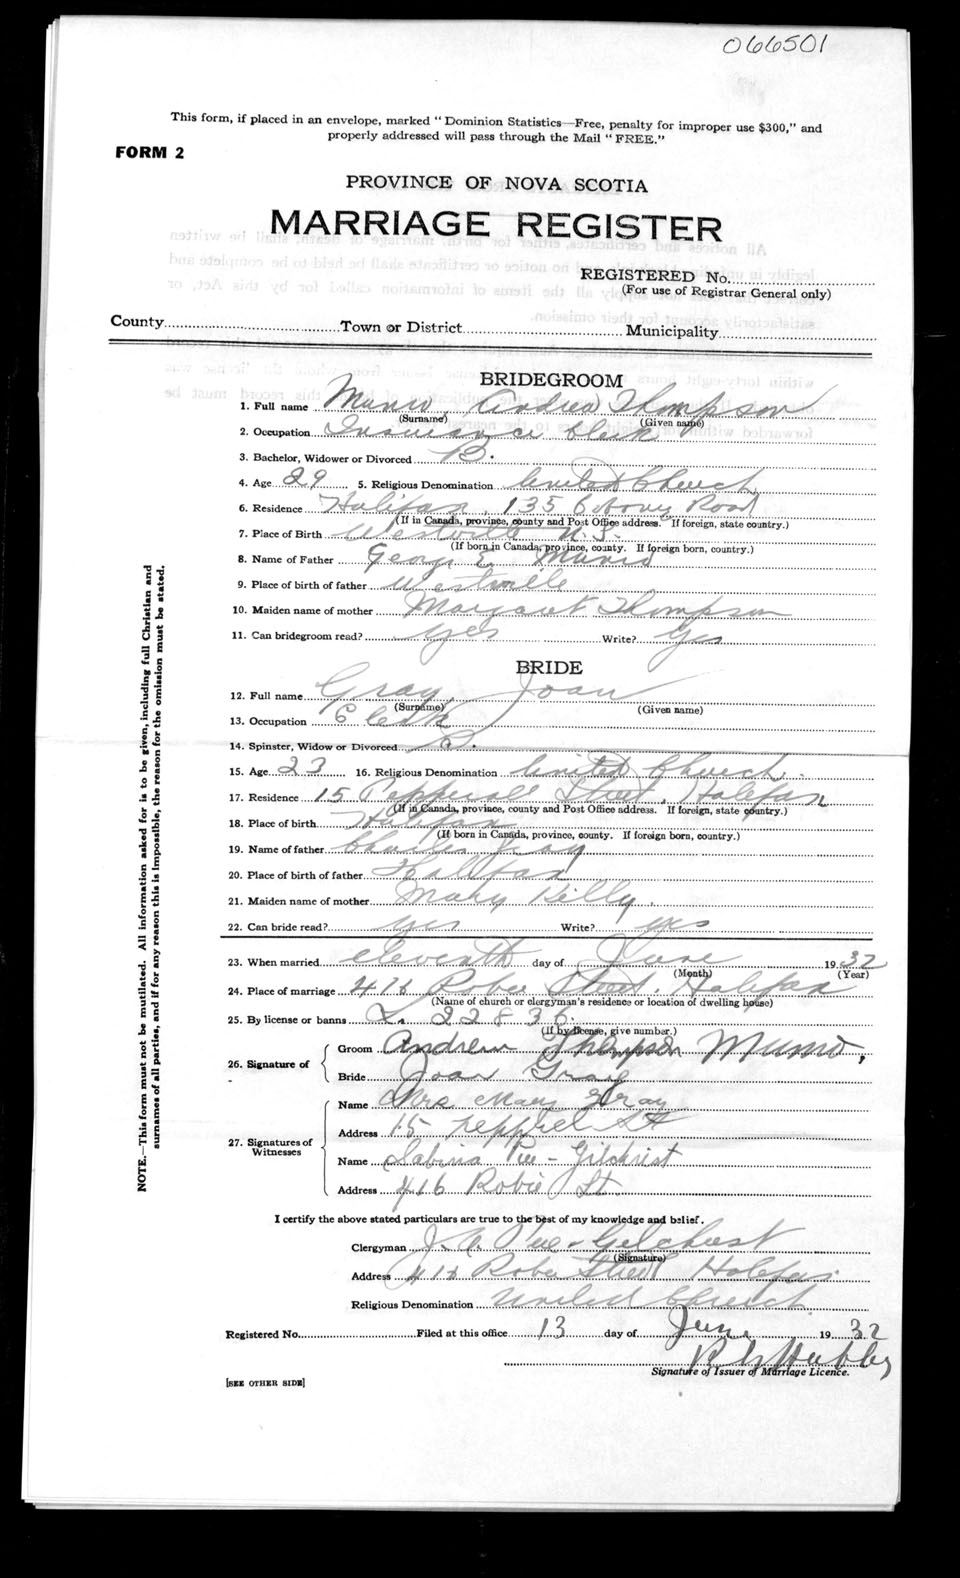 066501
This form, if placed in an envelope, marked "Dominion Statistics—Free, penalty for improper use $300," and
properly addressed will pass through the Mail "FREE."
FORM 2
PROVINCE OF NOVA SCOTIA
MARRIAGE REGISTER
REGISTERED No.
(For use of Registrar General only)
County Town or District Municipality
BRIDEGROOM
1. Full name Munro, Andrew Thompson
(Surname) (Given name)
2. Occupation Insurance Clerk
3. Bachelor, Widower or Divorced B.
4. Age 29 5. Religious Denomination United Church
6. Residence Halifax, 135 Road
(If in Canada, province, county and Post Office address. If foreign, state country.)
7. Place of Birth Westville N.S.
(If born in Canada, province, county. If foreign born, country.)
8. Name of Father George E. Munro
9. Place of birth of father Westville
10. Maiden name of mother Margaret Thompson
11. Can bridegroom read? yes Write? yes
BRIDE
12. Full name Gray, Joan
(Surname) (Given name)
13. Occupation Clerk
14. Spinster, Widow or Divorced S.
15. Age 23 16. Religious Denomination United Church.
17. Residence 15 Pepperell Street, Halifax
(If in Canada, province, county and Post Office address. If foreign, state country.)
18. Place of birth Halifax
(If born in Canada, province, county. If foreign born, country.)
19. Name of father Charles Gray
20. Place of birth of father Halifax
21. Maiden name of mother Mary Killy.
22. Can bride read? yes Write? yes
23. When married eleventh day of June 1932
(Month) (Year)
24. Place of marriage 416 Robie Street, Halifax
(Name of church or clergyman's residence or location of dwelling house)
25. By license or banns L. 22836.
(If by license, give number.)
26. Signature of
Groom Andrew Thompson Munro,
Bride Joan Gray
27. Signatures of Witnesses
Name Mrs Mary Gray
Address 15 St
Name Sabina Pue-Gilchrist
Address 416 Robie St.
I certify the above stated particulars are true to the best of my knowledge and belief.
Clergyman J. A. Pue-Gilchrist
(Signature)
Address 416 Robie Street Halifax
Religious Denomination United Church
Registered No. Filed at this office 13 day of June 1932
Signature of Issuer of Marriage Licence.
[SEE OTHER SIDE]
NOTE.—This form must not be mutilated. All information asked for is to be given, including full Christian and
surnames of all parties, and if for any reason this is impossible, the reason for the omission must be stated.